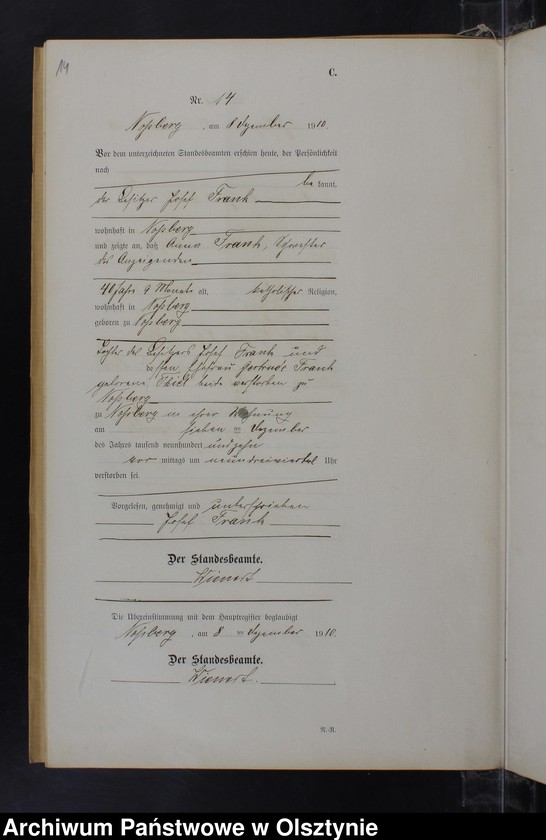 14
C.
Nr. 14
Noßberg, am 8 Dezember 1910.
Vor dem unterzeichneten Standesbeamten erschien heute, der Persönlichkeit
nach
be kannt,
der Besitzer Josef Frank
wohnhaft in Noßberg
und zeigte an, daß Anna Frank, Schwester
des Anzeigenden
40 Jahre 9 Monate alt, katholischer Religion,
wohnhaft in Noßberg
geboren zu Noßberg
Tochter des Besitzers Josef Frank und
dessen Ehefrau Gertrude Frank
geborene Thiel beide verstorben zu
Noßberg
zu Noßberg in ihrer Wohnung
am sieben ten Dezember
des Jahres tausend neunhundert und zehn
vor mittags um neundreiviertel Uhr
verstorben sei.
Vorgelesen, genehmigt und unterschrieben
Josef Frank
Der Standesbeamte.
Wienert
Die Übereinstimmung mit dem Hauptregister beglaubigt
Noßberg, am 8 ten Dezember 1910.
Der Standesbeamte.
Wienert.
N.-R.
Archiwum Państwowe w Olsztynie